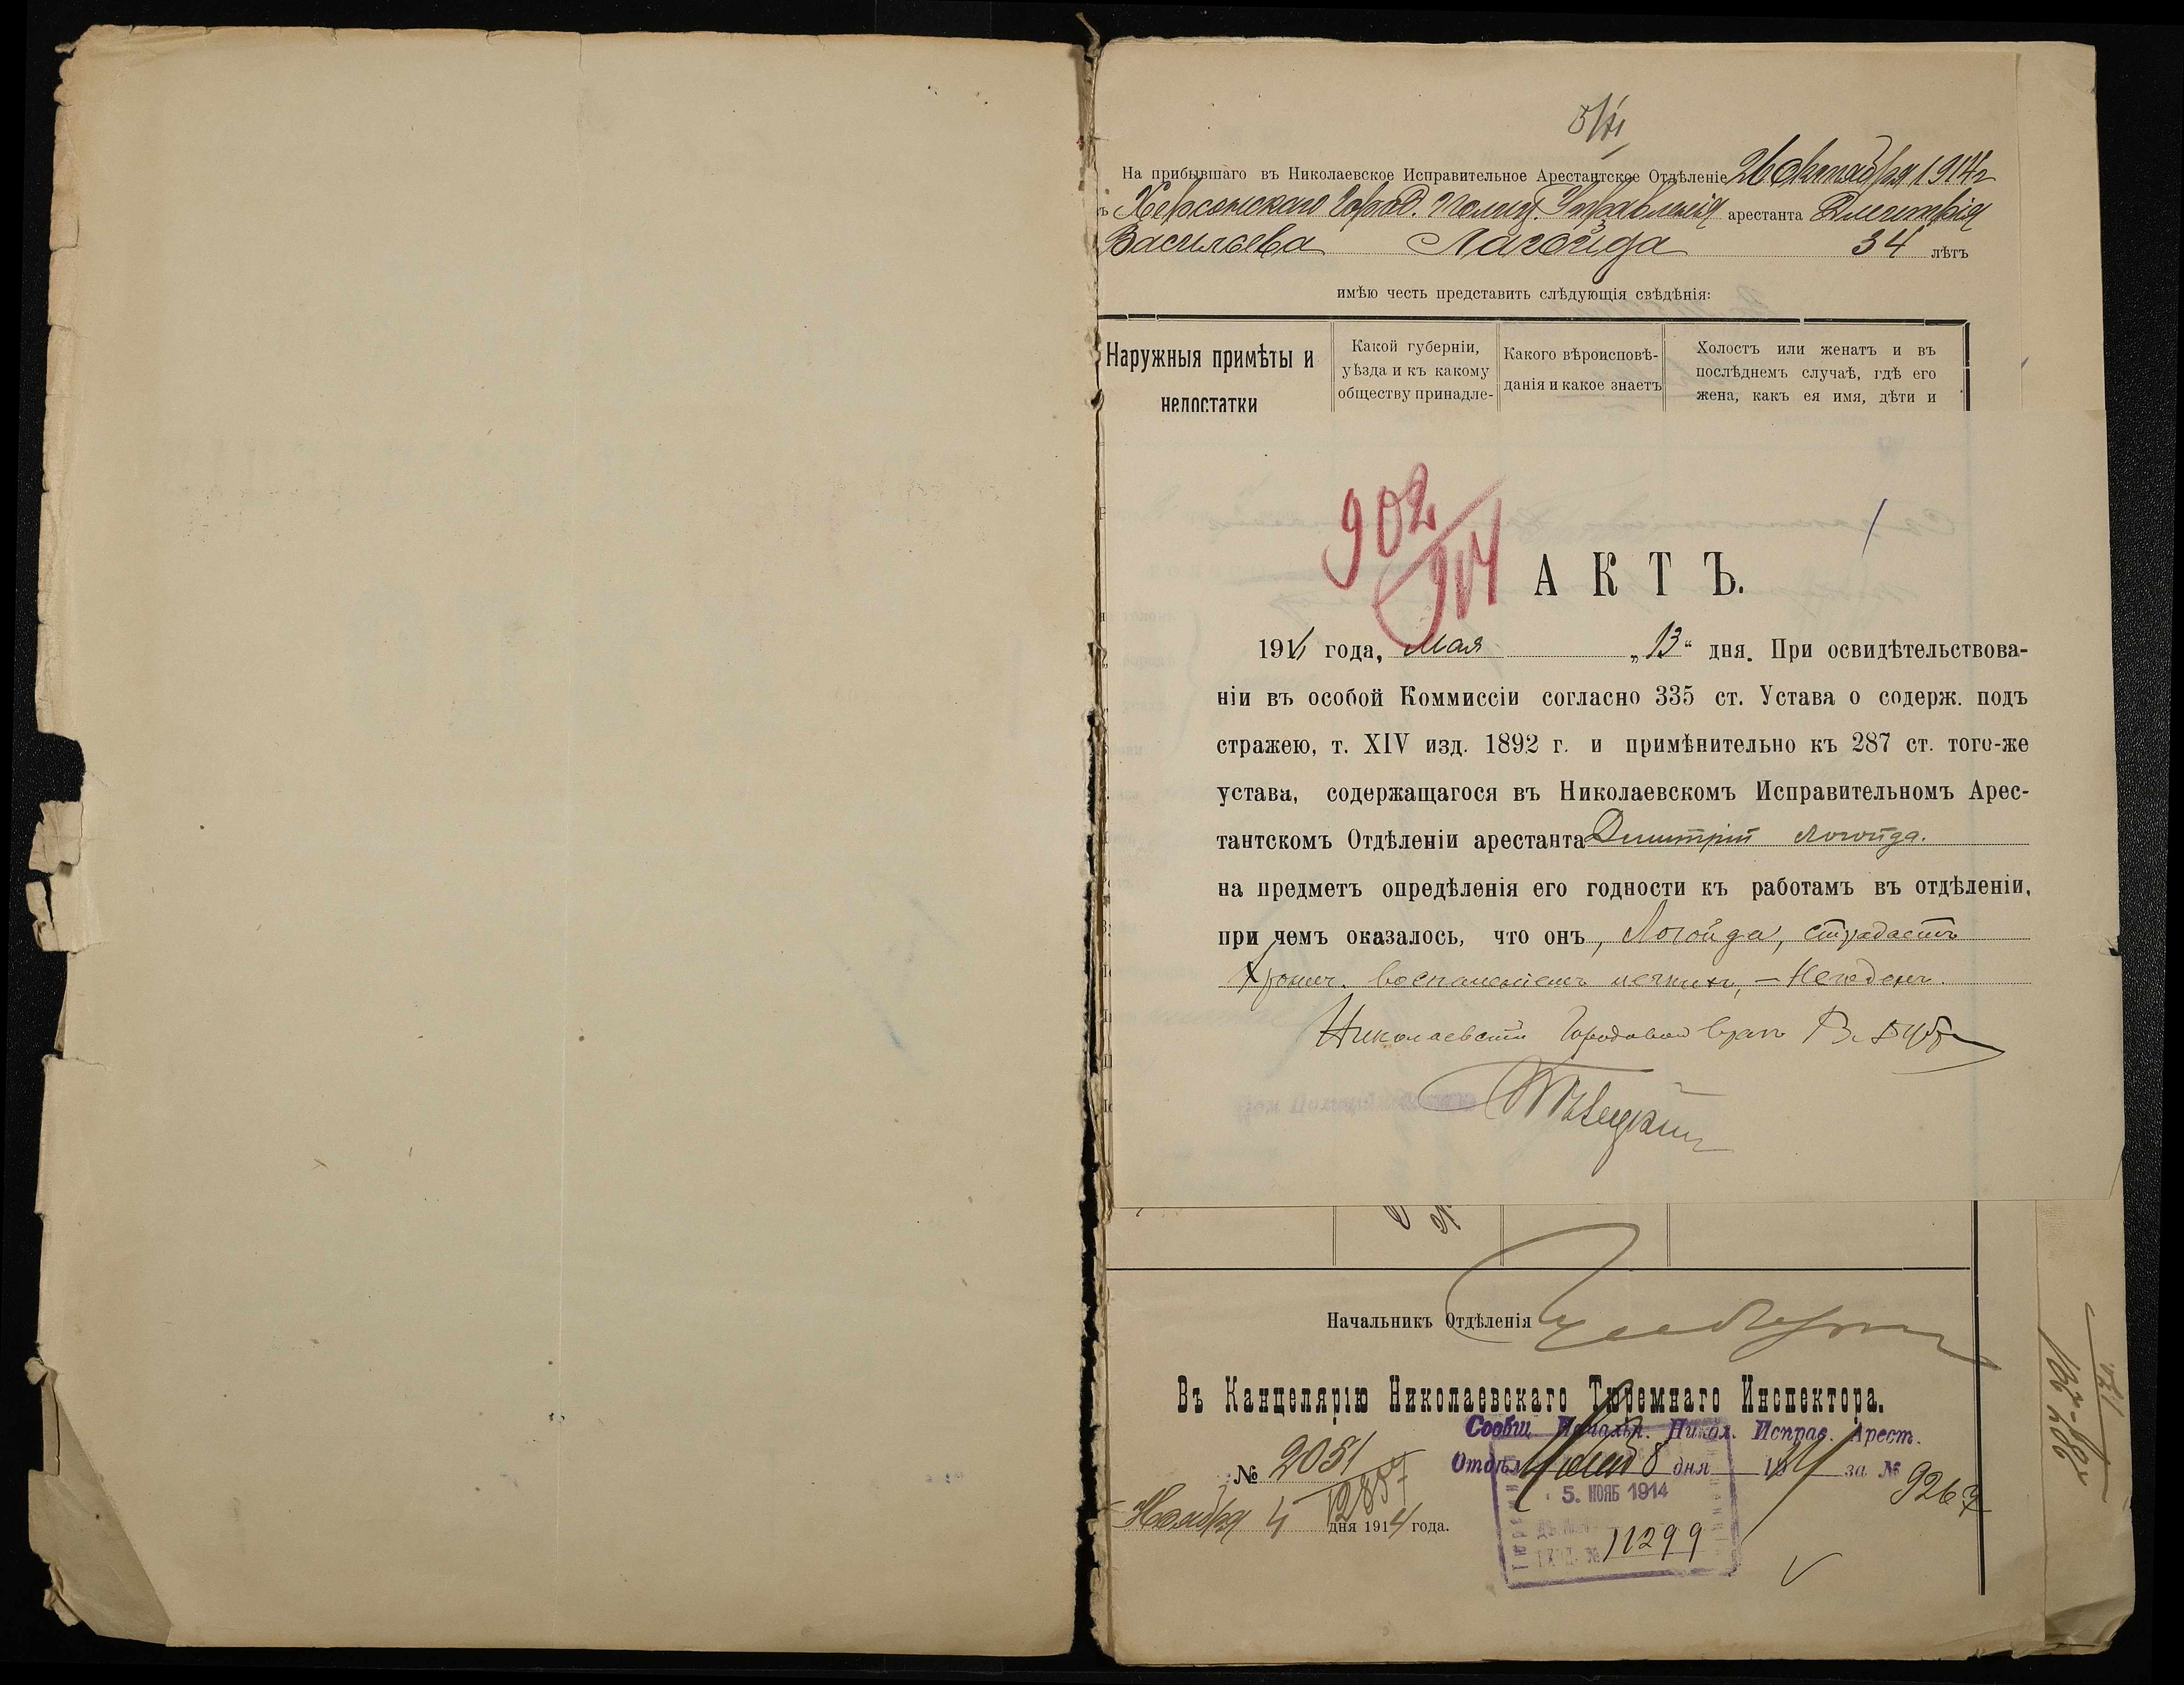 5/XI
На прибывшаго въ Николаевское Исправительное Арестантское Отдѣленіе 26 октября 1914 г
Херсонскаго Город. Полиц. Управленія арестанта Дмитрія
Васильева Лагойда 34 лѣтъ
имѣю честь представить слѣдующія свѣдѣнія:
Наружныя примѣты и недостатки
Какой губерніи, уѣзда и къ какому обществу принадле-
Какого вѣроисповѣ- данія и какое знаетъ
Холостъ или женатъ и въ послѣднемъ случаѣ, гдѣ его жена, какъ ея имя, дѣти и
902/914
АКТЪ.
191 года, Мая „13“ дня. При освидѣтельствова-
ніи въ особой Коммиссіи согласно 335 ст. Устава о содерж. подъ
стражею, т. XIV изд. 1892 г. и примѣнительно къ 287 ст. того-же
устава, содержащагося въ Николаевскомъ Исправительномъ Арес-
тантскомъ Отдѣленіи арестанта Дмитрій Логойда.
на предметъ опредѣленія его годности къ работамъ въ отдѣленіи,
при чемъ оказалось, что онъ, Логойда, страдаетъ
Хронич. воспаленіемъ почекъ, — Негоденъ.
Николаевскій Городовой врачъ В.
Начальникъ Отдѣленія
Въ Канцелярію Николаевскаго Тюремнаго Инспектора.
Сообщ. Начальн. Никол. Исправ. Арест.
Отдѣл. Нояб 8 дня 1914 за № 9267
№ 2051
12857
5. НОЯБ 1914
Ноября 4 дня 1914 года.
11299